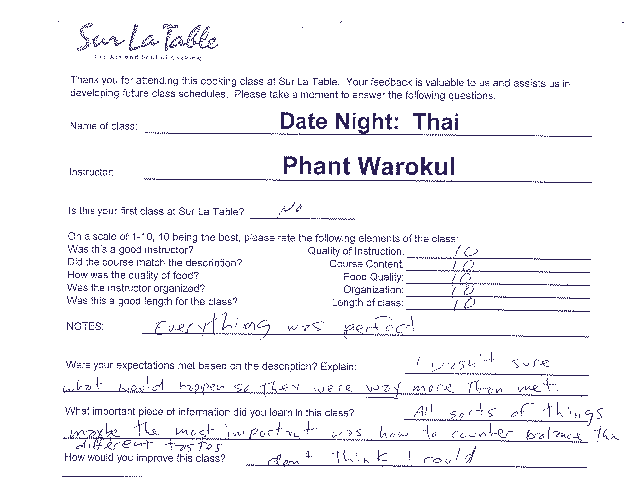 Sur La Table
The Art and Soul of Cooking
Thank you for attending this cooking class at Sur La Table. Your feedback is valuable to us and assists us in
developing future class schedules. Please take a moment to answer the following questions.
Name of class: Date Night: Thai
Instructor: Phant Warokul
Is this your first class at Sur La Table? No
On a scale of 1-10, 10 being the best, please rate the following elements of the class:
Was this a good instructor? Quality of Instruction: 10
Did the course match the description? Course Content: 10
How was the quality of food? Food Quality: 10
Was the instructor organized? Organization: 10
Was this a good length for the class? Length of class: 10
NOTES: Everything was perfect
Were your expectations met based on the description? Explain: I wasn't sure
what would happen so they were way more than met
What important piece of information did you learn in this class? All sorts of things
maybe the most important was how to counter balance the
different tastes
How would you improve this class? don't think I could